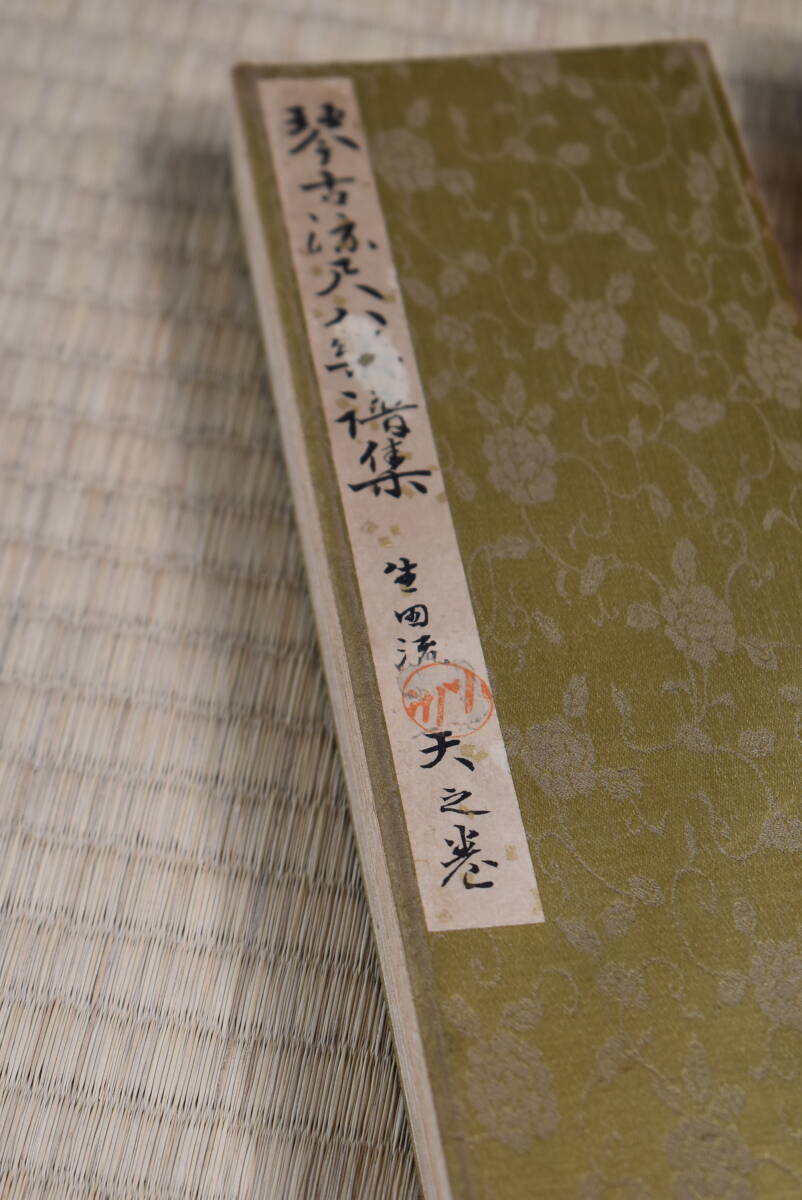 琴古流尺八 譜集
生田流
天之巻